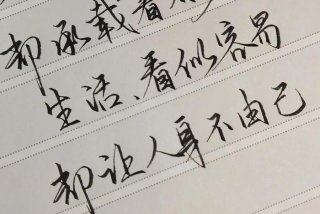 都承载着
生活、看似容易
却让人身不由己